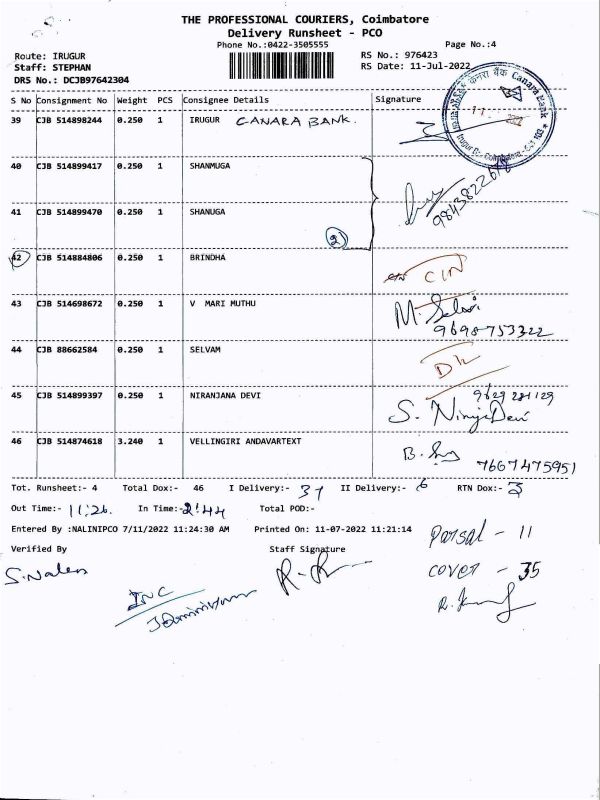 THE PROFESSIONAL COURIERS, Coimbatore
Delivery Runsheet - PCO
Phone No.:0422-3505555
Page No.:4
Route: IRUGUR
RS No.: 976423
Staff: STEPHAN
RS Date: 11-Jul-2022
DRS No.: DCJB97642304
केनरा बैंक Canara Bank
S No Consignment No Weight PCS Consignee Details Signature
39 CJB 514898244 0.250 1 IRUGUR CANARA BANK.
40 CJB 514899417 0.250 1 SHANMUGA
9843822678
41 CJB 514899470 0.250 1 SHANUGA
2
42 CJB 514884806 0.250 1 BRINDHA
CIN
43 CJB 514698672 0.250 1 V MARI MUTHU M. Selvi
9698753322
44 CJB 88662584 0.250 1 SELVAM
DL
45 CJB 514899397 0.250 1 NIRANJANA DEVI 9629281129
46 CJB 514874618 3.240 1 VELLINGIRI ANDAVARTEXT
7667475951
Tot. Runsheet:- 4 Total Dox:- 46 I Delivery:- 37 II Delivery:- 6 RTN Dox:- 3
Out Time:- 11:26. In Time:- 2:44 Total POD:-
Entered By :NALINIPCO 7/11/2022 11:24:30 AM Printed On: 11-07-2022 11:21:14
Parsal - 11
Verified By Staff Signature
cover - 35
INC